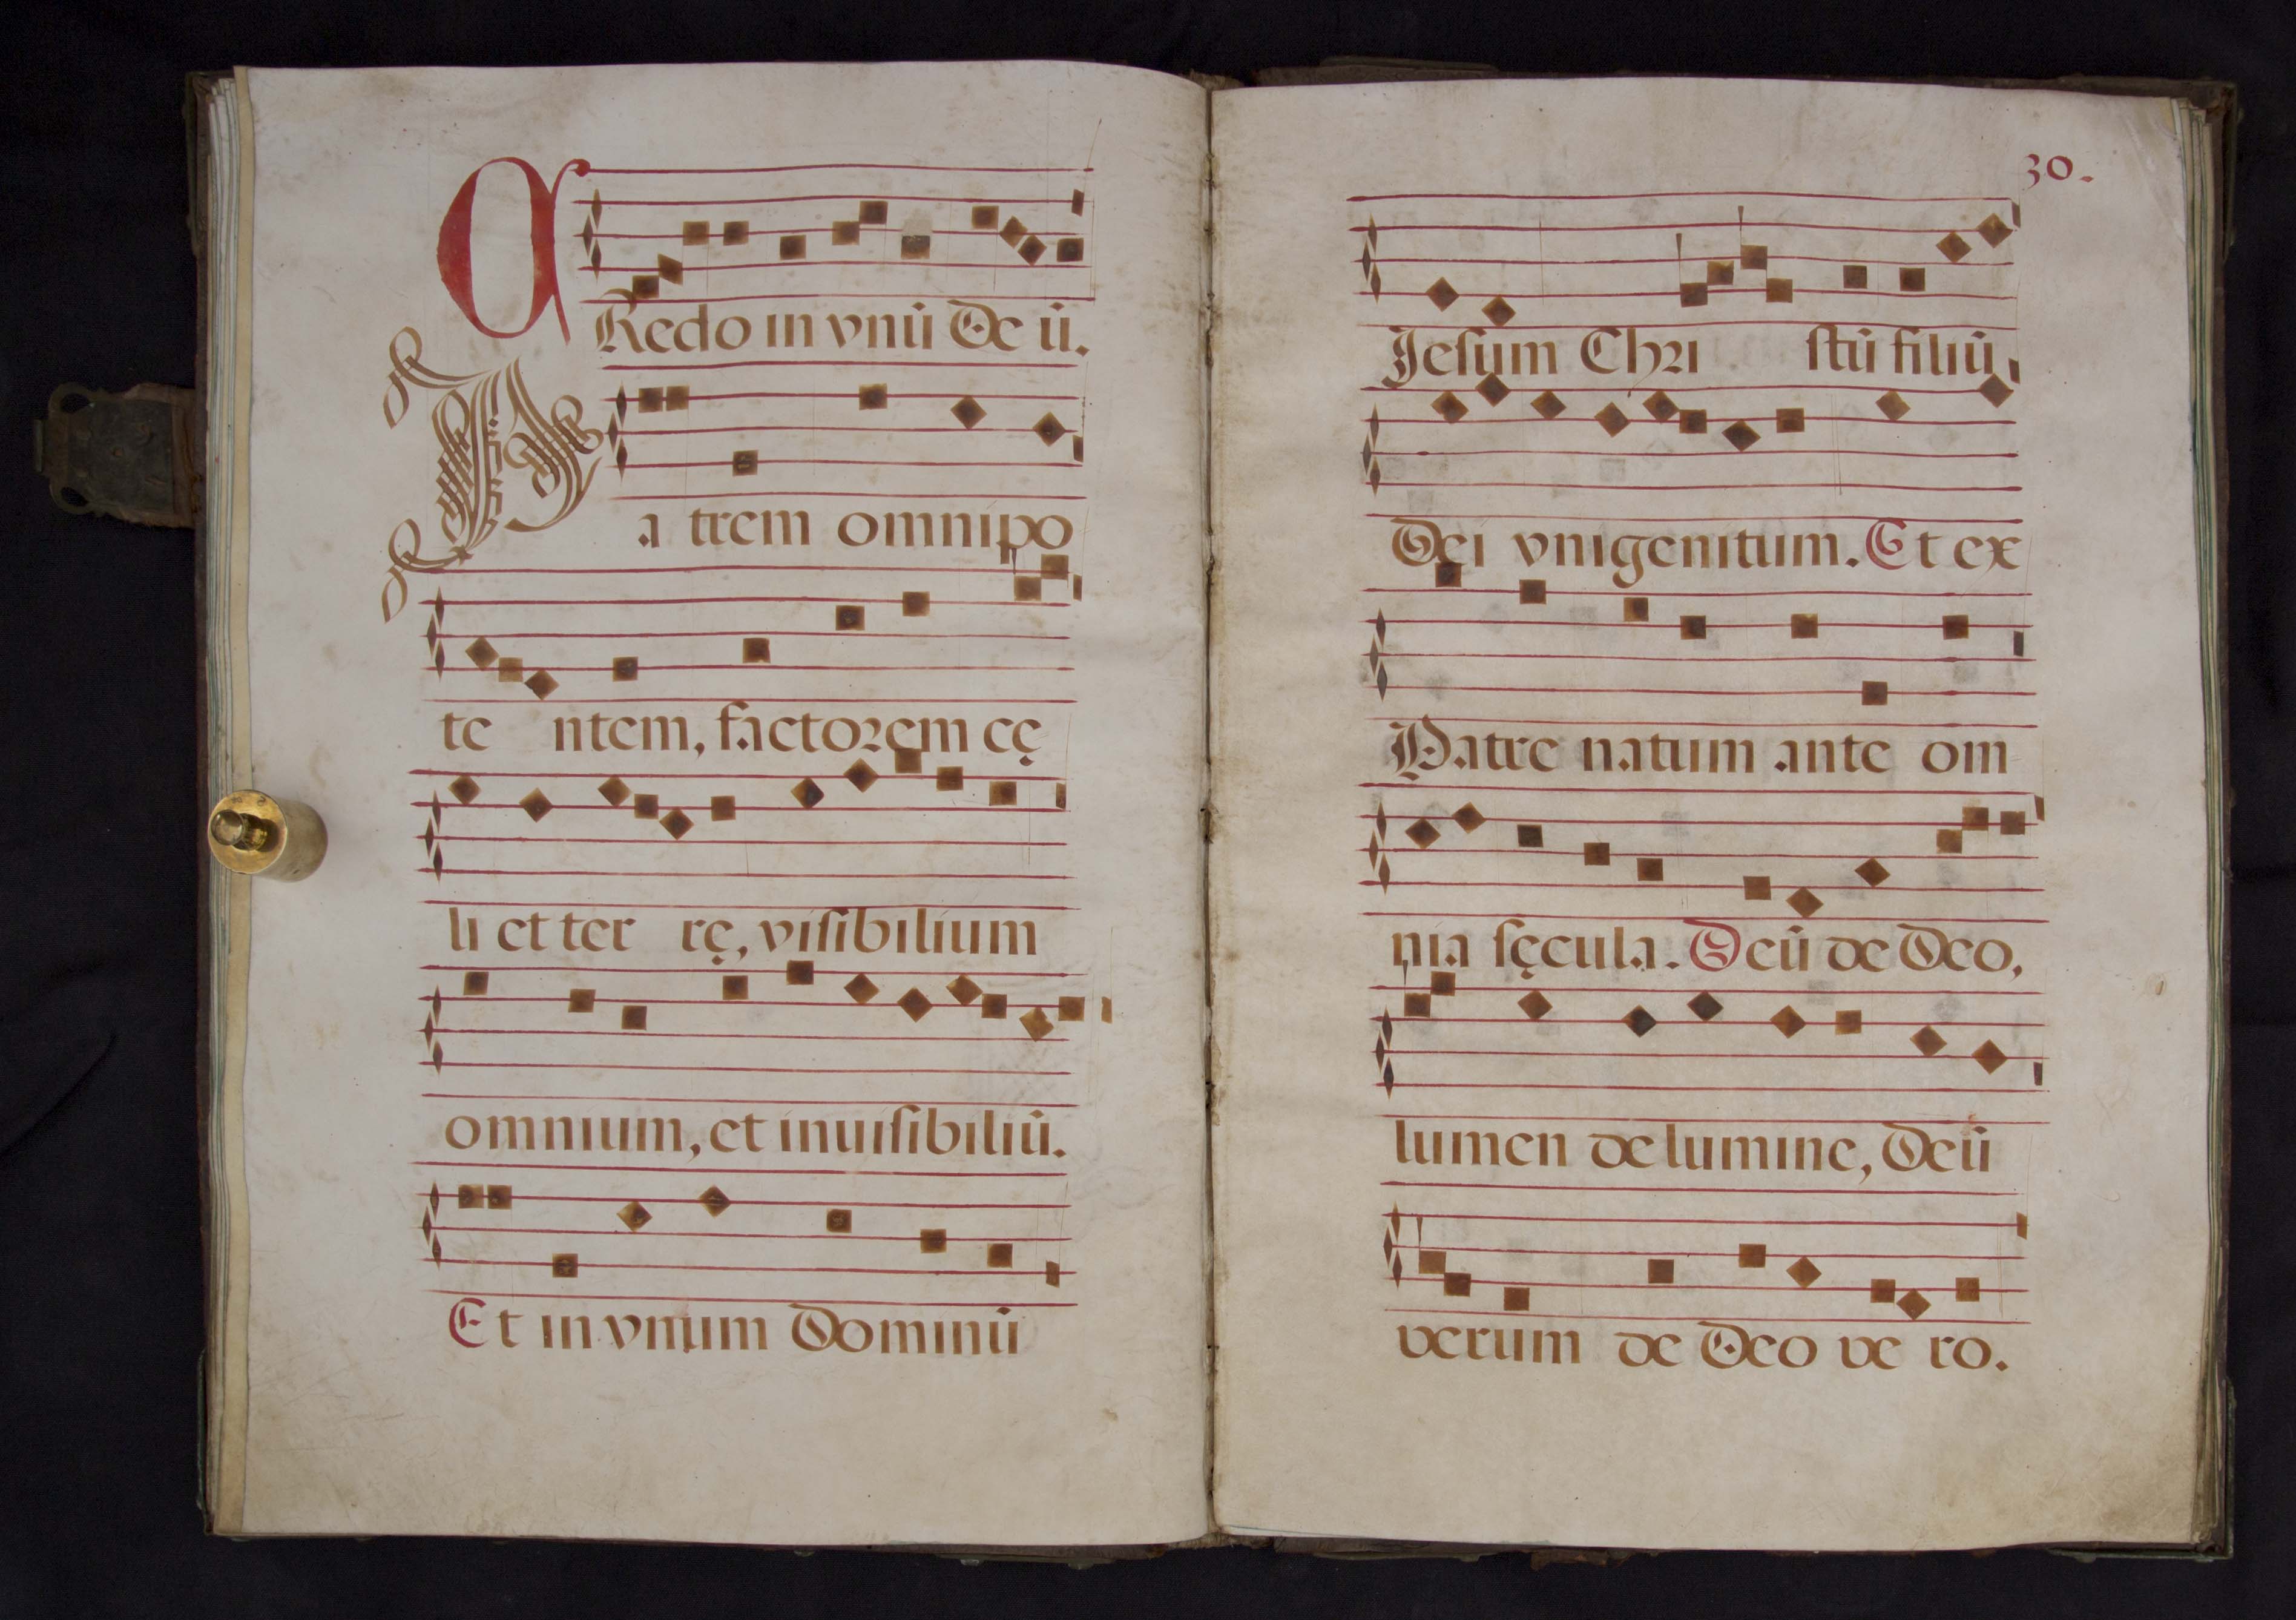 CRedo in vnū De ū.
Pa trem omnipo
te ntem, factorem cę
li et ter rę, visibilium
omnium, et inuisibiliū.
Et in vnum Dominū
30.
Jesum Chri stū filiū
Dei vnigenitum. Et ex
Patre natum ante om
nia sęcula. Deū de Deo,
lumen de lumine, Deū
verum de Deo ve ro.